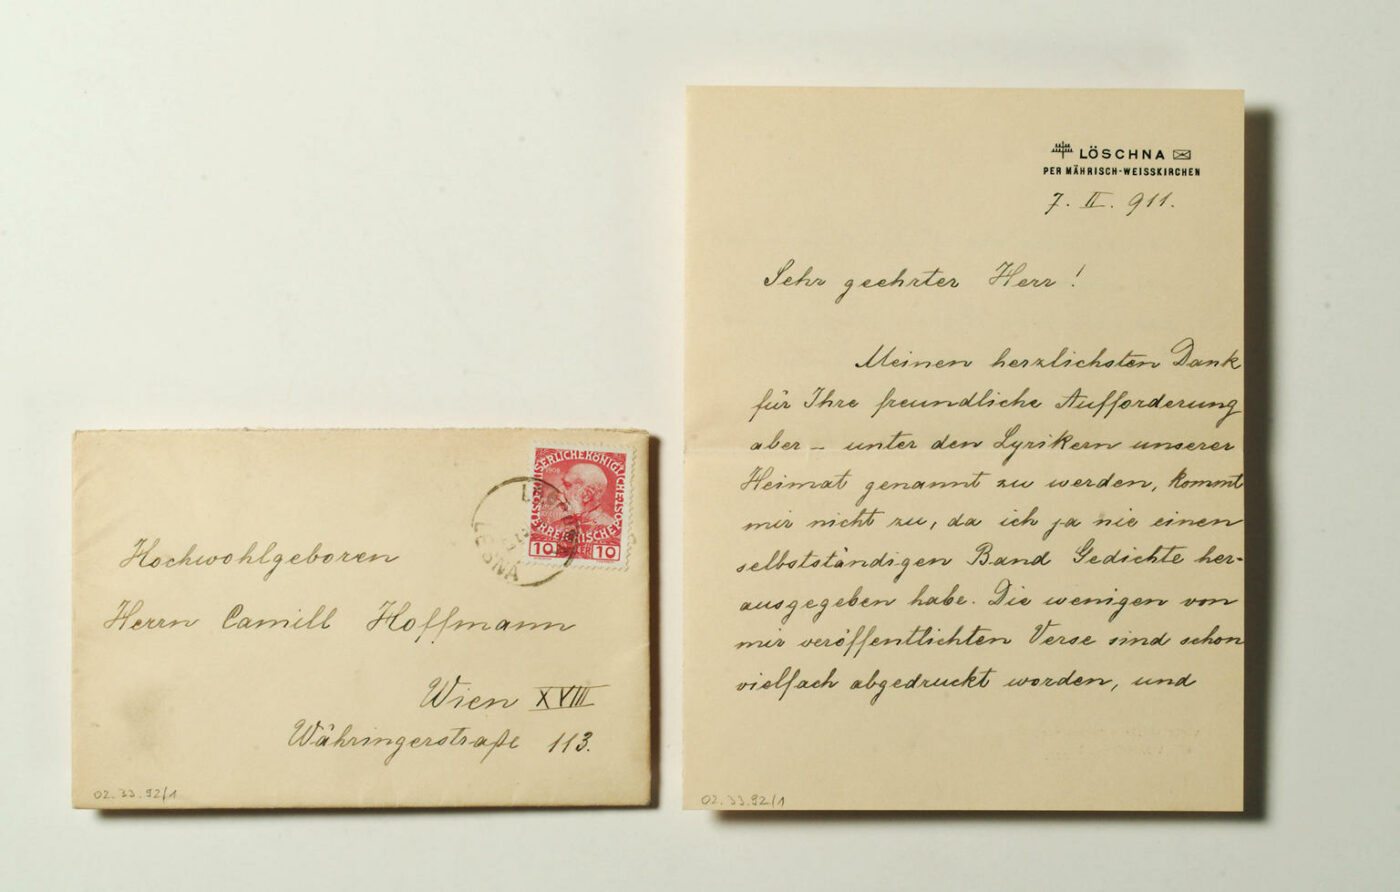 Hochwohlgeboren
Herrn Camill Hoffmann
Wien XVIII
Währingerstraße 113.
KAISERLICHEKÖNIGLICHE
ÖSTERREICHISCHE
POST
1908
10 10
LEŠNÁ
02.33.92/1
LÖSCHNA
PER MÄHRISCH-WEISSKIRCHEN
7. II. 911.
Sehr geehrter Herr!
Meinen herzlichsten Dank
für Ihre freundliche Aufforderung
aber – unter den Lyrikern unserer
Heimat genannt zu werden, kommt
mir nicht zu, da ich ja nie einen
selbstständigen Band Gedichte her-
ausgegeben habe. Die wenigen von
mir veröffentlichten Verse sind schon
vielfach abgedruckt worden, und
02.33.92/1